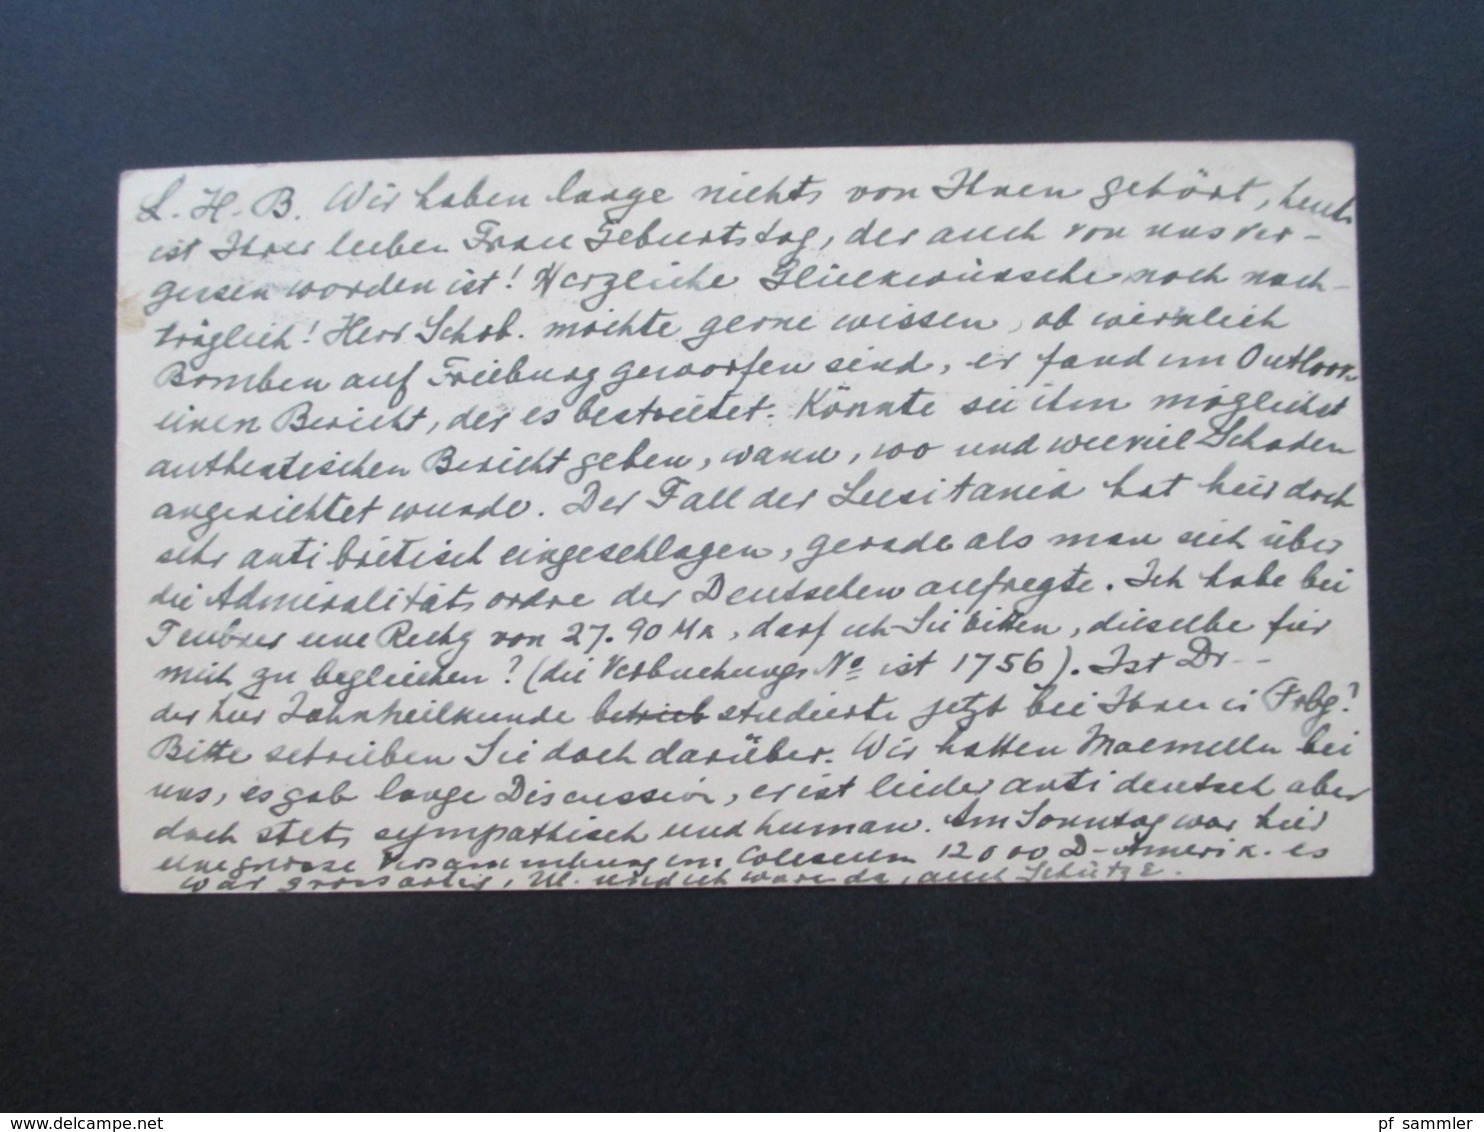 L. H. B. Wir haben lange nichts von Ihnen gehört, heute
ist Ihrer lieben Frau Geburtstag, der auch von uns ver-
gessen worden ist! Herzliche Glückwünsche noch nach-
träglich! Herr Schob. möchte gerne wissen, ob wirklich
Bomben auf Freiburg geworfen sind, er fand im Outlook
einen Bericht, der es bestreitet. Könnte sie ihm möglichst
authentischen Bericht geben, wann, wo und wieviel Schaden
angerichtet wurde. Der Fall der Lusitania hat hier doch
sehr antibritisch eingeschlagen, gerade als man sich über
die Admiralitätsordre der Deutschen aufregte. Ich habe bei
Teubner eine Rechg von 27.90 Mk, darf ich Sie bitten, dieselbe für
mich zu begleichen? (die Verbuchungs No ist 1756). Ist Dr --
der hier Zahnheilkunde betrieb studierte jetzt bei Ihnen in Frbg?
Bitte schreiben Sie doch darüber. Wir hatten bei
uns, es gab lange Discussion, er ist leider anti deutsch aber
doch stets sympathisch und human. Am Sonntag war hier
eine grosse Versammlung im Coliseum 12000 D-Amerik. es
war grossartig, M. und ich waren da, auch Schütze.
pf sammler
www.delcampe.net